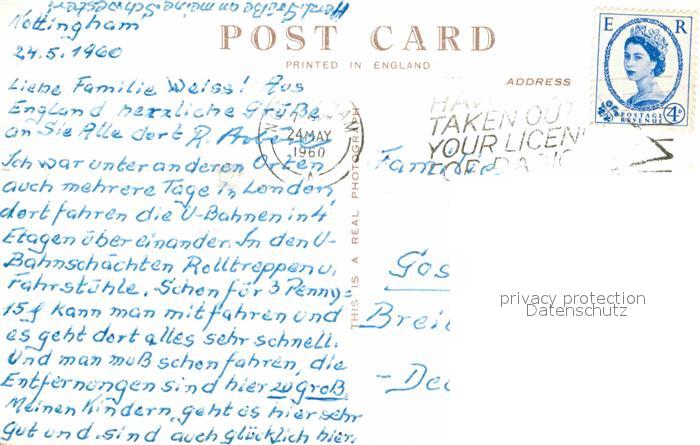 Nottingham
24.5.1960
Liebe Familie Weiss! Aus
England herzliche Grüße
an Sie Alle dort R.
Ich war unter anderen Orten
auch mehrere Tage in London,
dort fahren die U-Bahnen in 4
Etagen über einander. In den U-
Bahnschächten Rolltreppen u.
Fahrstühle. Schon für 3 Penny =
15 ₰ kann man mitfahren und
es geht dort alles sehr schnell.
Und man muß schon fahren, die
Entfernungen sind hier zu groß.
Meinen Kindern geht es hier sehr
gut und sind auch glücklich hier.
POST CARD
PRINTED IN ENGLAND
THIS IS A REAL PHOTOGRAPH
ADDRESS
24 MAY
1960
HAVE
TAKEN OUT
YOUR LICEN
E R
POSTAGE
REVENUE
4D
Gos
Brei
- Deu
privacy protection
Datenschutz